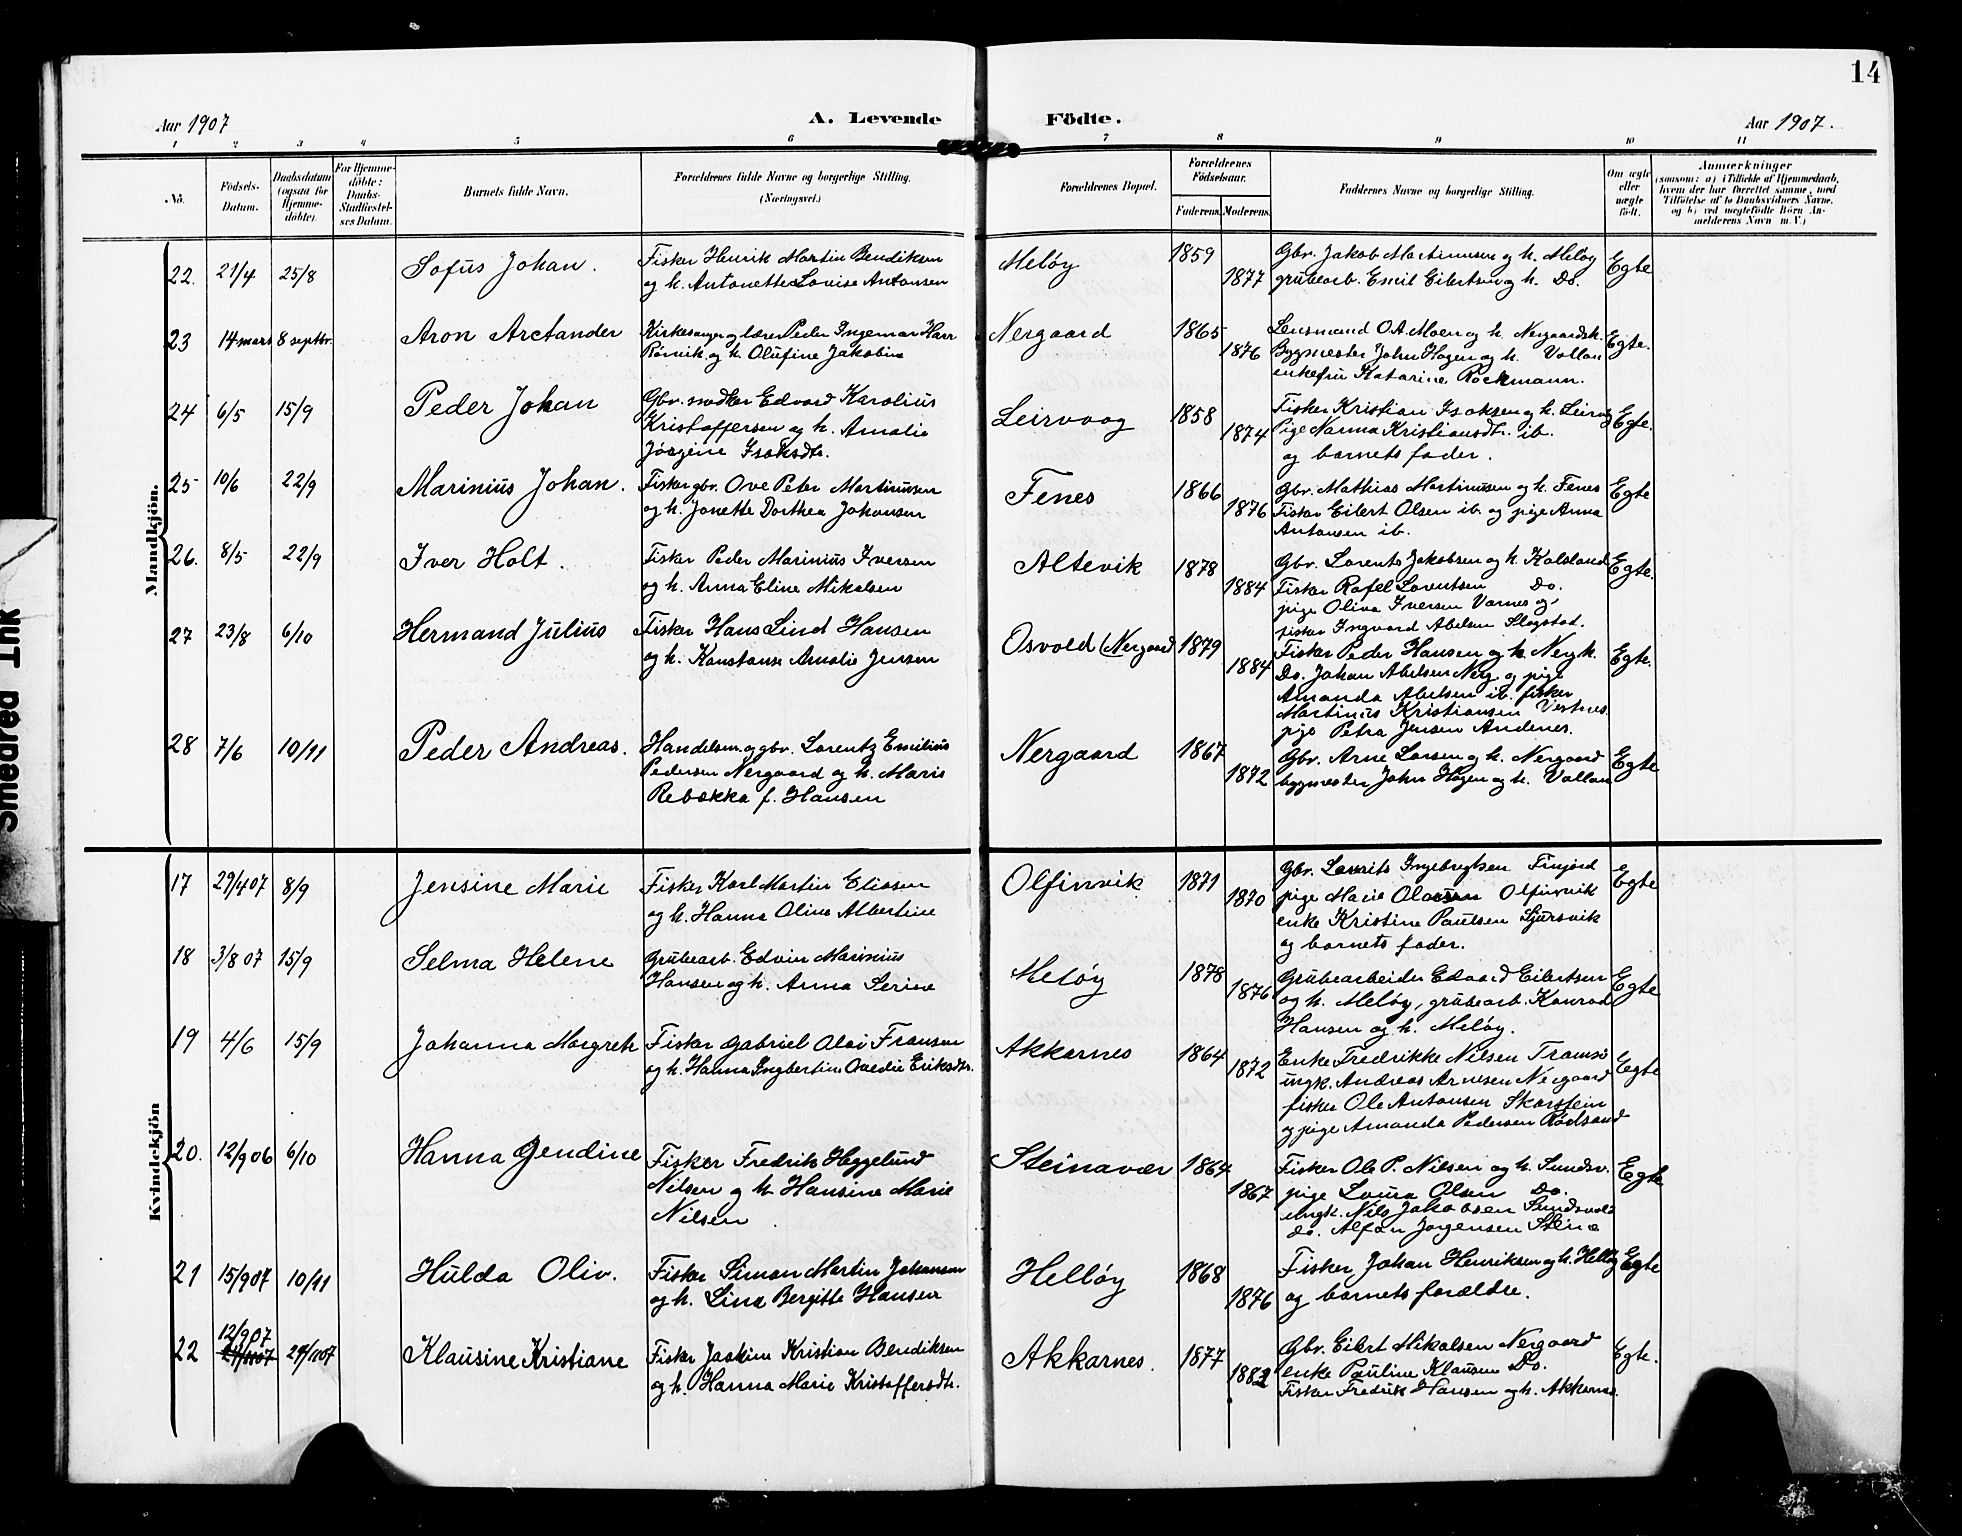 14
Aar 1907
A. Levende
Födte.
Aar 1907.
1 2 3 4 5 6 7 8 9 10 11
No.
Födsels-
Datum.
Daabsdatum
(ogsaa for
Hjemme-
döbte).
For Hjemme-
döbte:
Daabs-
Stadfæstel-
ses Datum.
Barnets fulde Navn.
Forældrenes fulde Navne og borgerlige Stilling.
(Næringsvei.)
Forældrenes Bopæl.
Forældrenes
Födselsaar.
Faderens. Moderens.
Faddernes Navne og borgerlige Stilling.
Om ægte
eller
uægte
födt.
Anmærkninger
(saasom: a) i Tilfælde af Hjemmedaab,
hvem der har forrettet samme, med
Tilföielse af to Daabsvidners Navne,
og b) ved uægtefödte Börn An-
melderens Navn m. V.)
Mandkjön.
22. 21/4 25/8 Sofus Johan.
Fisker Henrik Martin Bendiksen
og h. Antonette Lovise Antonsen
Meløy 1859 1877
Gbr. Jakob Martinusen og h. Meløy
grubearb. Emil Eilertsen og h. Do.
Egte
23 14 mars 8 septbr. Aron Arctander
Kirkesanger og lærer Peder Ingemar Harr
Rørvik og h. Olufine Jakobine
Nergaard 1865 1876
Lensmand O.A. Moen og h. Nergaardsh.
Bygmester John Hagen og h. Vallan
enkefru Katarine Rockmann.
Egte.
24 6/5 15/9 Peder Johan
Gbr. snedker Edvard Karolius
Kristoffersen og h. Amalie
Jørgine Isaksdtr.
Leirvaag 1858 1874
Fisker Kristian Isaksen og h. Leirvg
Pige Nanna Kristiansdtr. ib.
og barnets fader.
Egte.
25 10/6 22/9 Marinius Johan.
Fisker gbr. Ove Peter Martinusen
og h. Jonette Dorthea Johansen
Fenes 1866 1876
Gbr. Mathias Martinusen og h. Fenes
Fisker Eilert Olsen ib. og pige Anna
Antonsen ib.
Egte
26. 8/5 22/9 Iver Holt.
Fisker Peder Marinius Iversen
og h. Anna Eline Mikalsen
Altevik 1878 1884
Gbr. Lorents Jakobsen og h. Kalsland
Fisker Rafel Lorentsen Do.
pige Oliva Iversen Varnes og
fisker Ingvard Abelsen Slagstad.
Egte.
27 23/8 6/10 Hermand Julius
Fisker Hans Lind Hansen
og h. Konstanse Amalie Jensen
Osvold (Nergaard 1879 1884
Fisker Peder Hansen og h. Nergh.
Do. Johan Abelsen Nerg. og pige
Amanda Abelsen ib. fisker
Martinus Kristiansen Vestnes.
pige Petra Jensen Andenes.
Egte.
28 7/6 10/11 Peder Andreas.
Handelsm. og gbr. Lorentz Emilius
Pedersen Nergaard og h. Marie
Rebekka f. Hansen
Nergaard 1867 1872
Gbr. Arne Larsen og h. Nergaard
bygmester John Hagen og h. Vallan
Egte
Kvindekjön
17 29/4 07 8/9 Jensine Marie
Fisker Karl Martin Eliasen
og h. Hanna Oline Albertine
Olfinvik 1871 1870
Gbr. Laurits Ingebregtsen Finjord
pige Marie Olaisen Olfinvik
enke Kristine Paulsen Sjursvik
og barnets fader.
Egte
18 3/8 07 15/9 Selma Helene
Grubearb. Edvin Marinius
Hansen og h. Anna Serine
Meløy 1878 1876
Grubearbeider Edvard Eilertsen
og h. Meløy, grubearb. Konrad
Hansen og h. Meløy.
Egte
19 4/6 15/9 Johanna Margreth
Fisker Gabriel Olai Fransen
og h. Hanna Ingbertine Ovedie Eriksdtr.
Akkarnes 1864 1872
Enke Fredrikke Nilsen Tromsø
ungk. Andreas Arnesen Nergaard
fisker Ole Antonsen Skarstein
og pige Amanda Pedersen Rødsand
Egte
20. 12/9 06 6/10 Hanna Gendine
Fisker Fredrik Heggelund
Nilsen og h. Hansine Marie
Nilsen
Steinavær 1864 1867
Fisker Ole P. Nilsen og h. Sundsv.
pige Laura Olsen Do.
ungk. Nils Jakobsen Sundsvold
do. Alfon Jørgensen Steine
Egte
21 15/9 07 10/11 Hulda Oliv.
Fisker Simon Martin Johansen
og h. Lina Bergitte Hansen
Helløy 1868 1876
Fisker Johan Henriksen og h. Helløy
og barnets forældre.
Egte
22 12/9 07 24/11 07 24/11 07 Klausine Kristiane
Fisker Joakim Kristian Bendiksen
og h. Hanna Marie Kristoffersdtr.
Akkarnes. 1877 1882
Gbr. Eilert Mikalsen Nergaard
enke Pauline Klausen Do.
Fisker Fredrik Hansen og h. Akkarnes.
Egte.
Smeared Ink